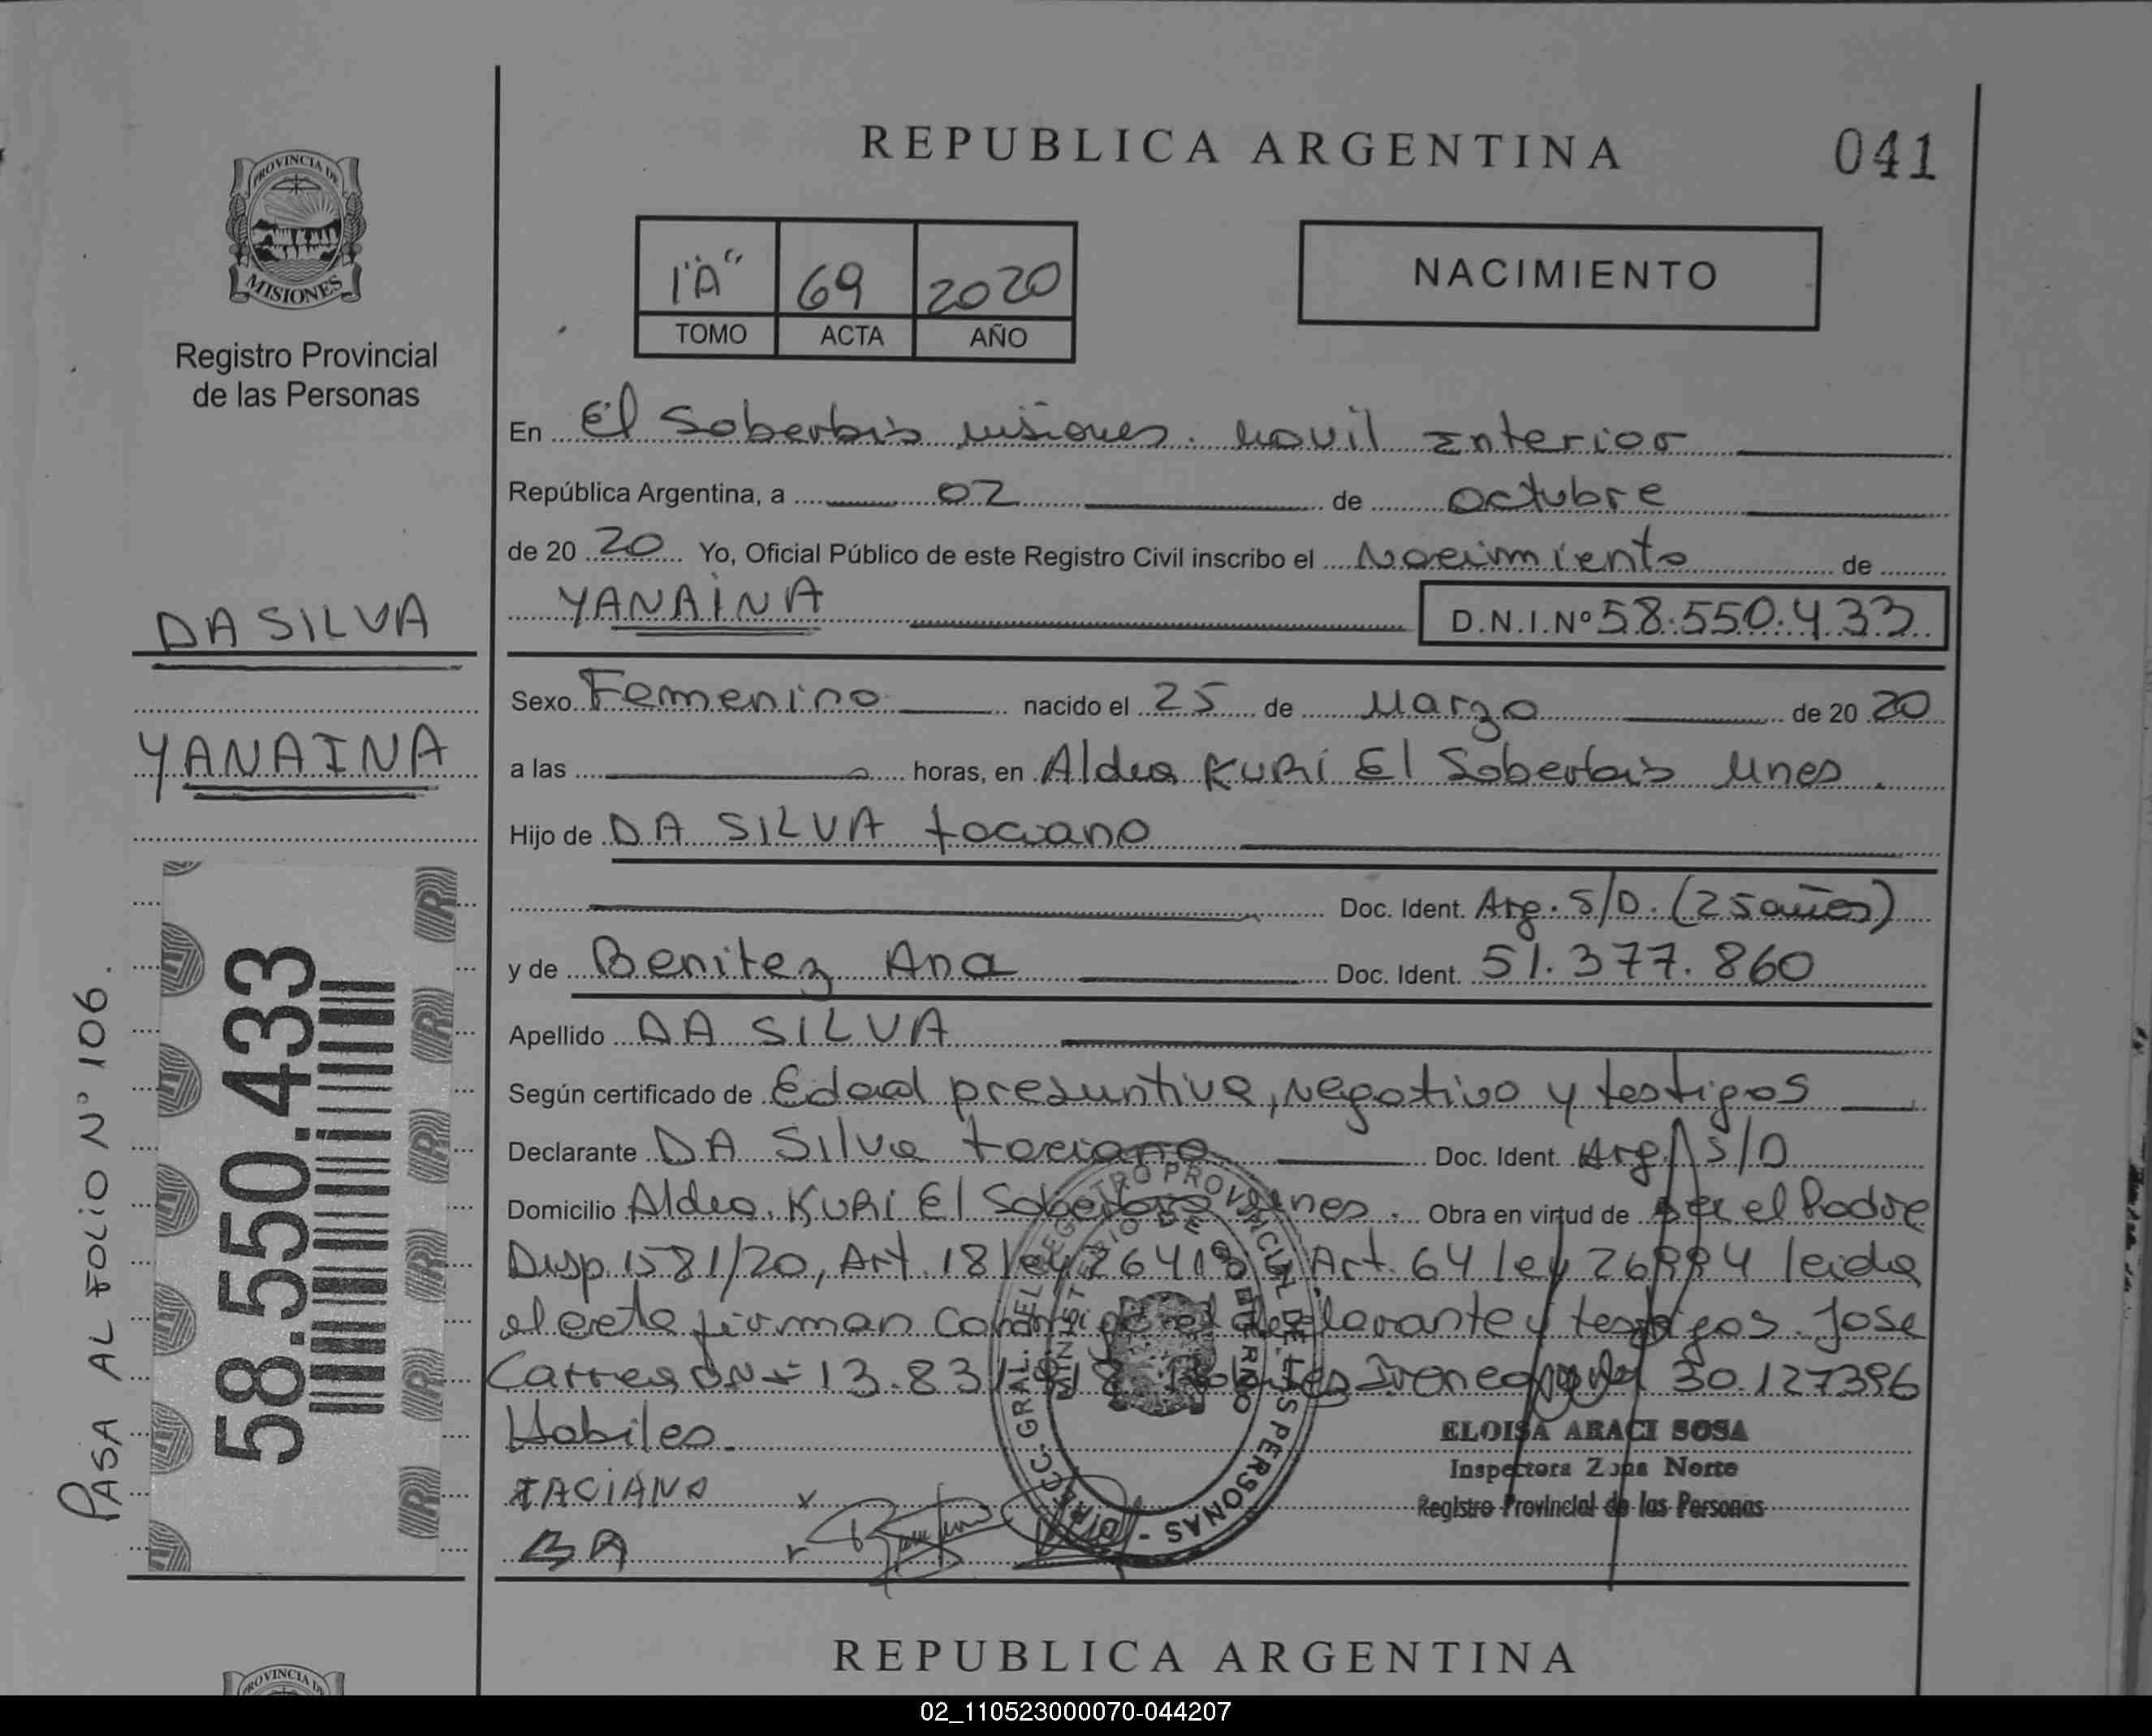 REPUBLICA ARGENTINA
041
PROVINCIA DE
MISIONES
Registro Provincial
de las Personas
1"A" 69 2020
TOMO ACTA AÑO
NACIMIENTO
En El Soberbio Misiones. Movil Interior
República Argentina, a 02 de octubre
de 20 20 Yo, Oficial Público de este Registro Civil inscribo el Nacimiento de
YANAINA D.N.I.Nº 58.550.433
DA SILVA
YANAINA
Sexo Femenino nacido el 25 de Marzo de 20 20
a las horas, en Aldea KURI El Soberbio Mnes.
Hijo de DA SILVA taciano
Doc. Ident. Arg. S/D. (25 años)
y de Benitez Ana Doc. Ident. 51.377.860
Apellido DA SILVA
Según certificado de Edad presuntiva, negativo y testigos
Declarante DA Silva taciano Doc. Ident. Arg S/D
Domicilio Aldea KURI El Soberbio Mnes. Obra en virtud de ser el Padre
Disp. 1581/20, Art. 18 ley 26413 Art. 64 ley 26994 leida
el acta firman el declarante y testigos. Jose
13.83 30.127396
Habiles.
TACIANO
BA
ELOISA ARACI SOSA
Inspectora Zona Norte
Registro Provincial de las Personas
58.550.433
PASA AL FOLIO Nº 106.
REPUBLICA ARGENTINA
PROVINCIA
02_110523000070-044207